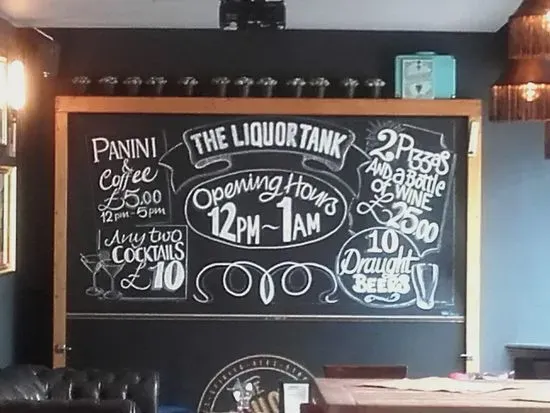 THE LIQUOR TANK
Opening Hours
12PM~1AM
PANINI
&
Coffee
£5.00
12pm-5pm
Any two
COCKTAILS
£10
2 Pizzas
AND a Bottle
of WINE
£25.00
10
Draught
BEERS